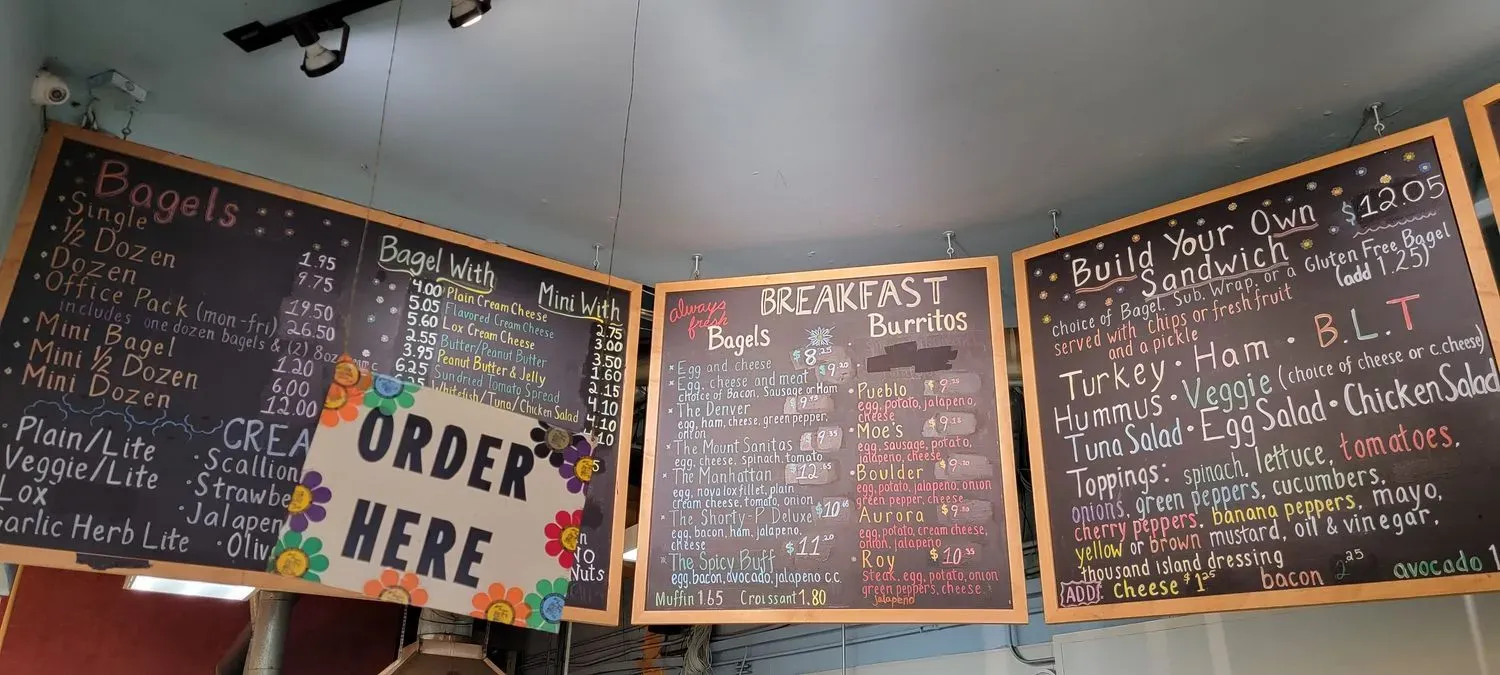 Bagels
• Single 1.95
½ Dozen 9.75
• Dozen 19.50
• Office Pack (mon-fri) 26.50
includes one dozen bagels & (2) 8oz
• Mini Bagel 1.20
• Mini ½ Dozen 6.00
• Mini Dozen 12.00
CREA
• Plain/Lite
Veggie/Lite
Lox
Garlic Herb Lite
• Scallion
• Strawbe
• Jalapen
• Oliv
Bagel With
Mini With
4.00 Plain Cream Cheese 2.75
5.05 Flavored Cream Cheese 3.00
5.60 Lox Cream Cheese 3.50
2.55 Butter/Peanut Butter 1.60
3.95 Peanut Butter & Jelly 2.15
6.25 Sundried Tomato Spread 4.10
Whitefish/Tuna/Chicken Salad 4.10
NO
Nuts
ORDER
HERE
always
fresh
BREAKFAST
Bagels
* Egg and cheese $8.25
* Egg, cheese and meat $9.20
choice of Bacon, Sausage or Ham
* The Denver
egg, ham, cheese, green pepper,
onion
* The Mount Sanitas
egg, cheese, spinach, tomato
* The Manhattan
egg, nova lox fillet, plain
cream cheese, tomato, onion
* The Shorty-P Deluxe
egg, bacon, ham, jalapeno,
cheese
* The Spicy Buff $11.20
egg, bacon, avocado, jalapeno c.c.
Muffin 1.65 Croissant 1.80
Burritos
• Pueblo
egg, potato, jalapeno,
cheese
• Moe's
egg, sausage, potato,
jalapeno, cheese
• Boulder
egg, potato, jalapeno, onion
green pepper, cheese
• Aurora
egg, potato, cream cheese,
onion, jalapeno
• Roy
steak, egg, potato, onion
green peppers, cheese
jalapeño
Build Your Own
Sandwich
$12.05
choice of Bagel, Sub, Wrap, or a Gluten Free Bagel
(add 1.25)
served with chips or fresh fruit
and a pickle
Turkey • Ham • B.L.T
Hummus • Veggie (choice of cheese or c.cheese)
Tuna Salad • Egg Salad • Chicken Salad
Toppings: spinach, lettuce, tomatoes,
onions, green peppers, cucumbers,
cherry peppers, banana peppers, mayo,
yellow or brown mustard, oil & vinegar,
thousand island dressing
ADD: cheese $1.25 bacon 2.25 avocado 1